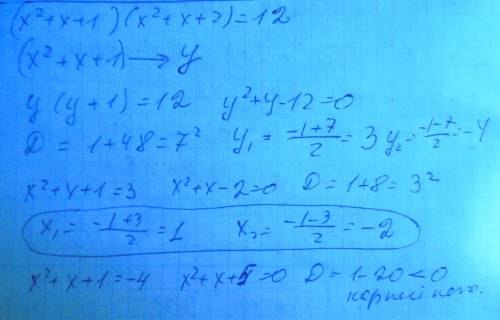 (x²+x+1)(x²+x+2)=12
(x²+x+1)→y
y(y+1)=12 y²+y-12=0
D=1+48=7² y₁=\frac{-1+7}{2}=3 y₂=\frac{-1-7}{2}=-4
x²+x+1=3 x²+x-2=0 D=1+8=3²
x₁=\frac{-1+3}{2}=1 x₂=\frac{-1-3}{2}=-2
x²+x+1=-4 x²+x+5=0 D=1-20<0
корней